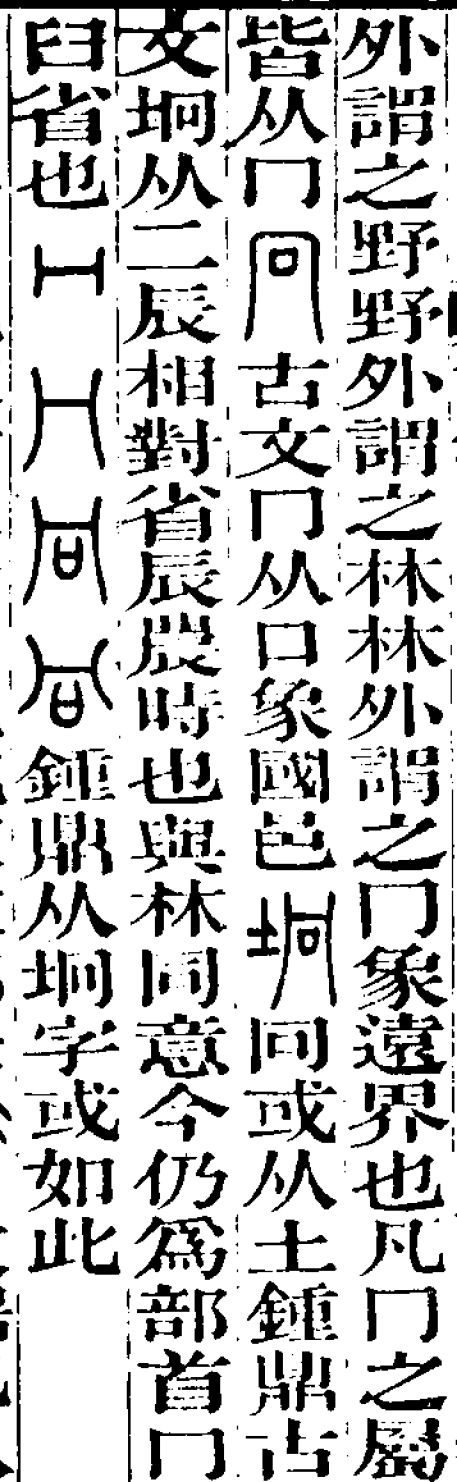 外謂之野野外謂之林林外謂之冂象遠界也凡冂之屬
皆从冂冋古文冂从口象國邑坰冋或从土鍾鼎古
文坰从二辰相對省辰農時也與林同意今仍爲部首冂
臼省也冂冂冋冋鍾鼎从坰字或如此